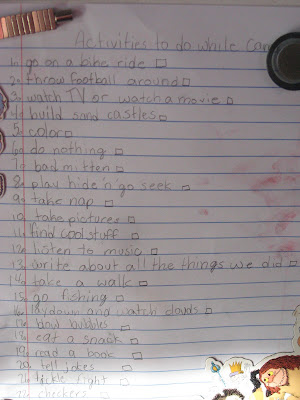 Activities to do while Cam
1. go on a bike ride
2. throw football around
3. watch TV or watch a movie
4. build sand castles
5. color
6. do nothing
7. badmitten
8. play hide n go seek
9. take nap
10. take pictures
11. find cool stuff
12. listen to music
13. write about all the things we did
14. take a walk
15. go fishing
16. laydown and watch clouds
17. blow bubbles
18. eat a snack
19. read a book
20. tell jokes
21. tickle fight
22. checkers